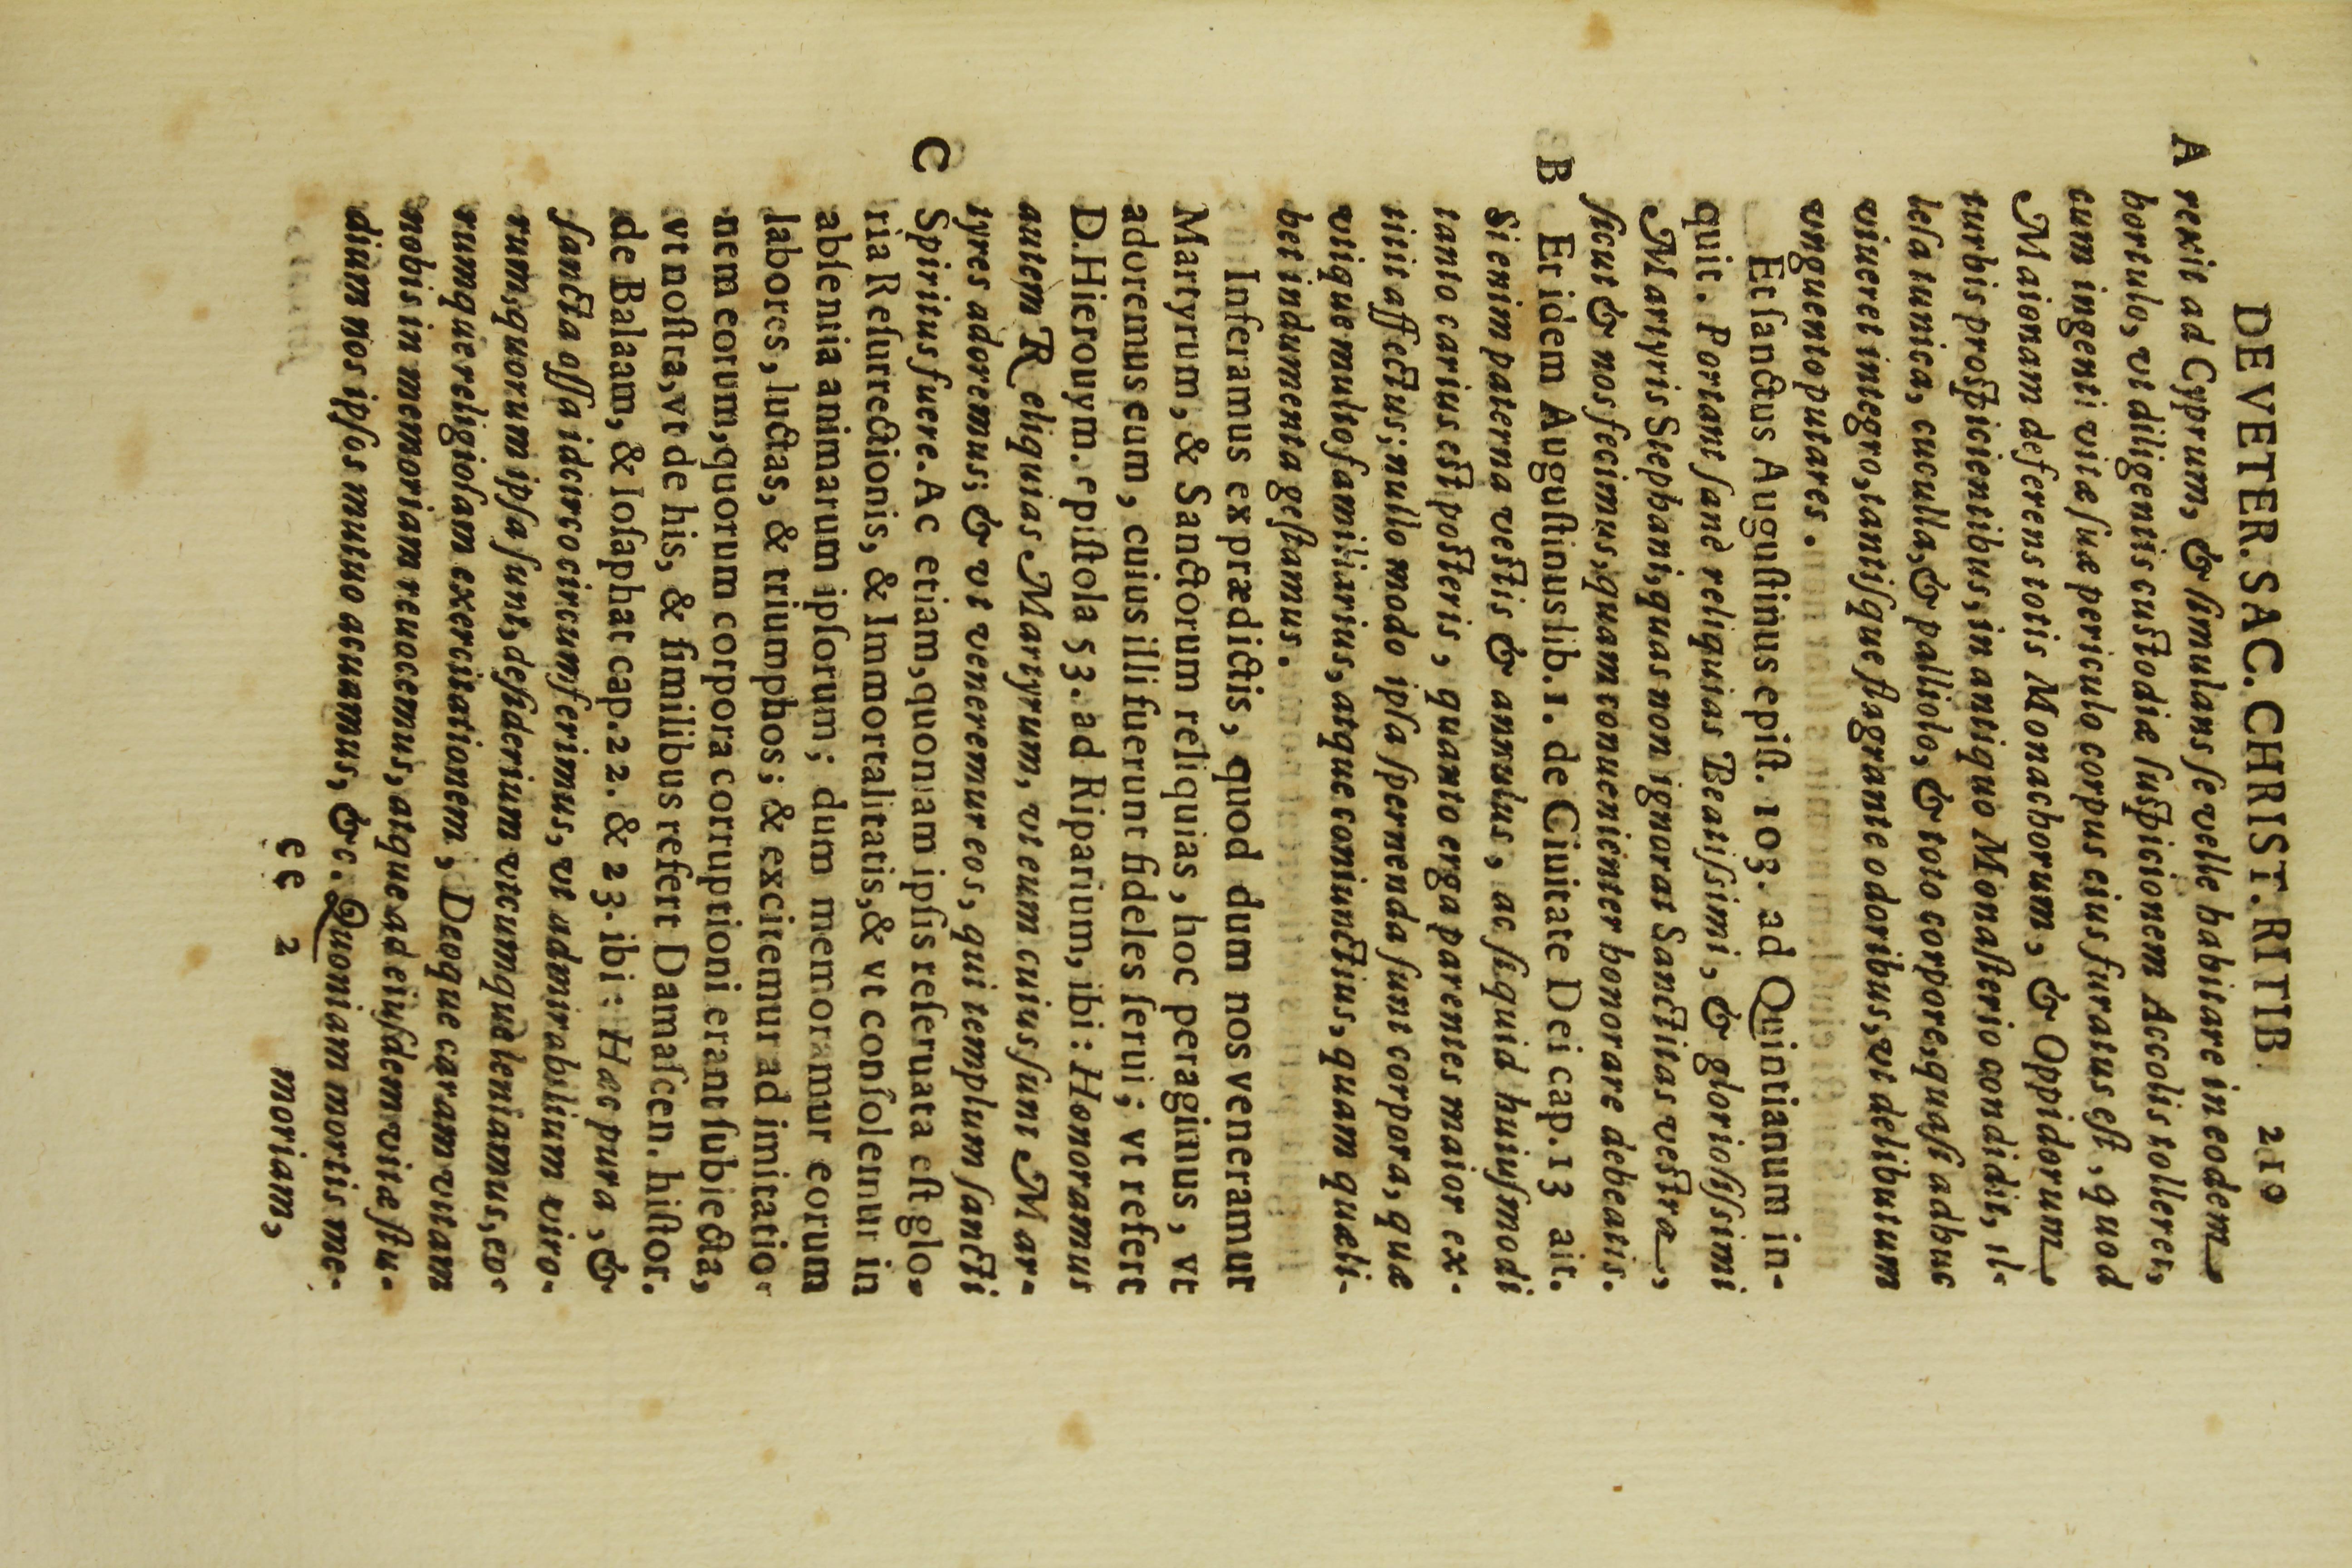 DE VETER. SAC. CHRIST. RITIB. 219
A rexit ad Cyprum, & ſimulans ſe velle habitare in eodem
hortulo, vt diligentis cuſtodiæ ſuſpicionem Accolis tolleret,
cum ingenti vitæ ſuæ periculo corpus eius furatus eſt, quod
Maionam deferens totis Monachorum, & Oppidorum
turbis proſpicientibus, in antiquo Monaſterio condidit, il-
leſa tunica, cuculla, & palliolo, & toto corpore, quaſi adhuc
viueret integro, tantiſque flagrante odoribus, vt delibutum
vnguento putares.
Et ſanctus Auguſtinus epiſt. 103. ad Quintianum in-
quit. Portant ſanè reliquias Beatiſsimi, & glorioſiſsimi
Martyris Stephani, quas non ignorat Sanctitas veſtra,
ſicut & nos fecimus, quam conuenienter honorare debeatis.
B Et idem Auguſtinus lib. 1. de Ciuitate Dei cap. 13 ait.
Si enim paterna veſtis & annulus, ac ſi quid huiuſmodi
tanto carius eſt poſteris, quanto erga parentes maior ex-
titit affectus; nullo modo ipſa ſpernenda ſunt corpora, quæ
vtique multo familiarius, atque coniunctius, quam quæli-
bet indumenta geſtamus.
Inferamus ex prædictis, quod dum nos veneramur
Martyrum, & Sanctorum reliquias, hoc peragimus, vt
adoremus eum, cuius illi fuerunt fideles ſerui; vt refert
D. Hierouym. epiſtola 53. ad Riparium, ibi: Honoramus
autem Reliquias Martyrum, vt eum cuius ſunt Mar-
tyres adoremus; & vt veneremur eos, qui templum ſancti
C Spiritus fuere. Ac etiam, quoniam ipſis reſeruata eſt glo-
ria Reſurrectionis, & Immortalitatis, & vt conſolemur in
abſentia animarum ipſorum; dum memoramur eorum
labores, luctas, & triumphos; & excitemur ad imitatio-
nem eorum, quorum corpora corruptioni erant ſubiecta,
vt noſtra, vt de his, & ſimilibus refert Damaſcen. hiſtor.
de Balaam, & Ioſaphat cap. 22. & 23. ibi: Hæc pura, &
ſancta oſſa idcirco circumferimus, vt admirabilium viro-
rum, quorum ipſa ſunt, deſiderium vtcumquè leniamus, eo-
rumque religioſam exercitationem, Deoque caram vitam
nobis in memoriam reuocemus, atque ad eiuſdem vitæ ſtu-
dium nos ipſos mutuo acuamus, &c. Quoniam mortis me-
Ee 2 moriam,